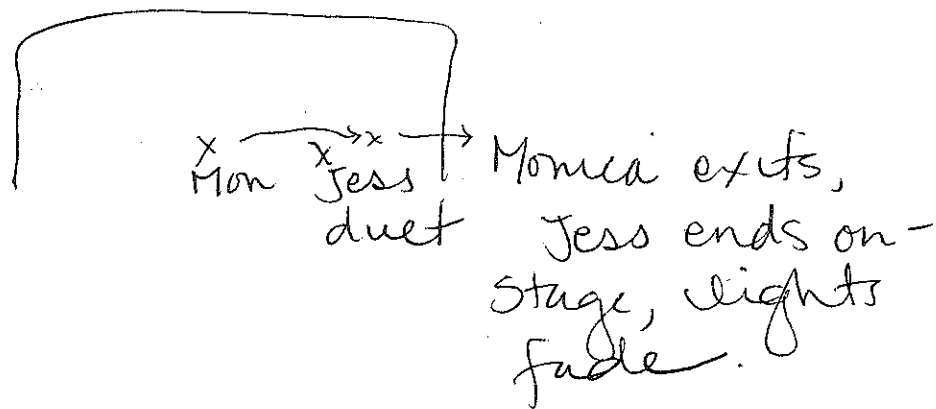 x x x
Mon Jess
duet
Monica exits,
Jess ends on-
stage, lights
fade.